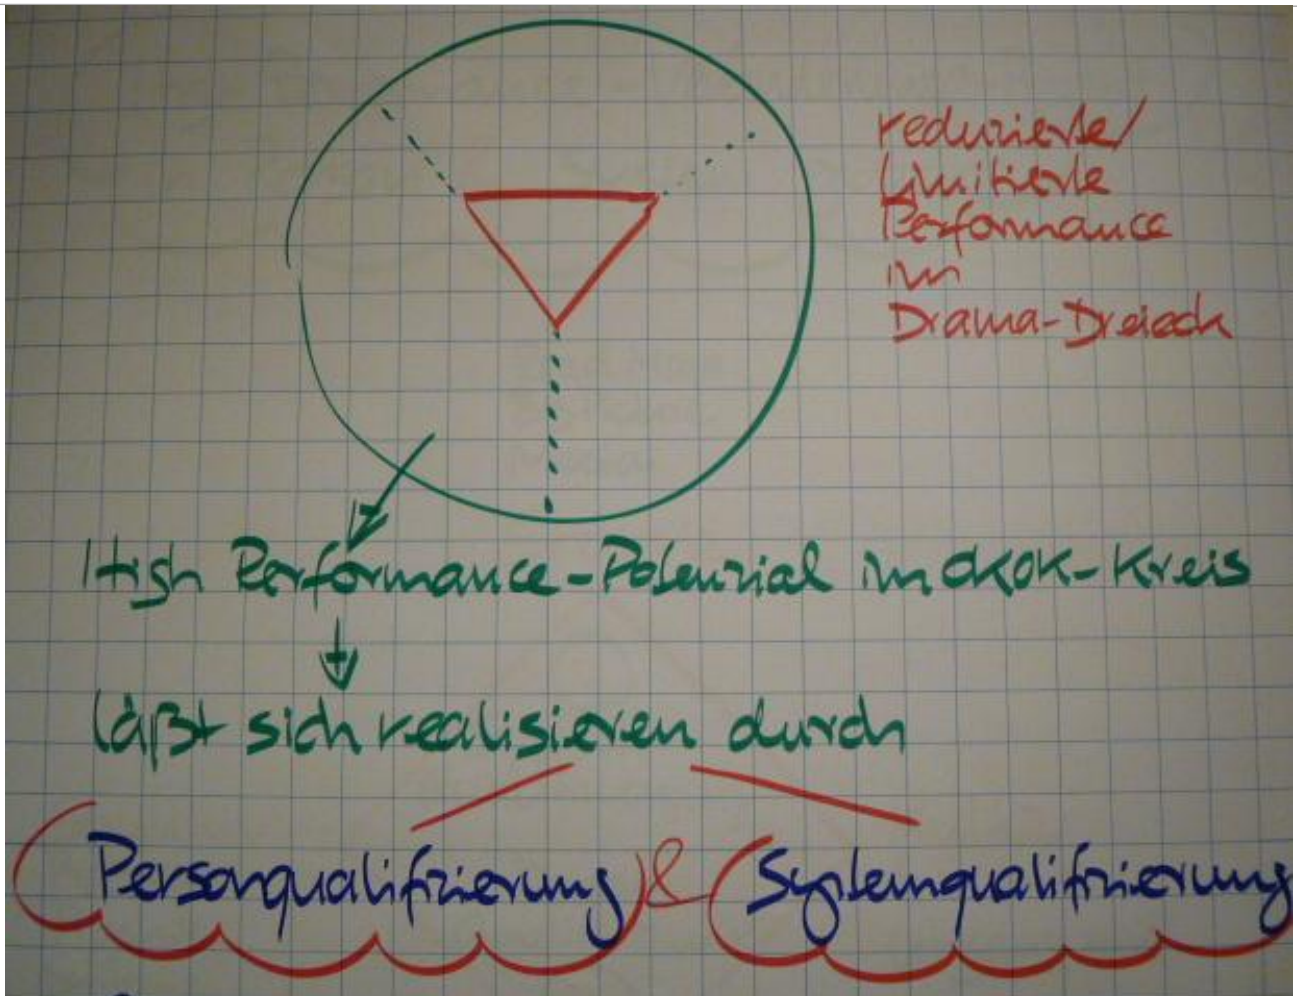 reduzierte/
limitierte
Performance
im
Drama-Dreieck
High Performance-Potenzial im OKOK-Kreis
läßt sich realisieren durch
Personqualifizierung & Systemqualifizierung